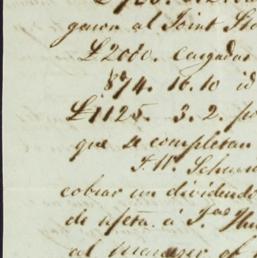 garon al Joint Sto
£2000. cargadas
874. 16. 10 id
£1125. 3. 2. po
que se completan
J. W. Schum
cobrar un dividendo
de afeta. á J.as
al manager of